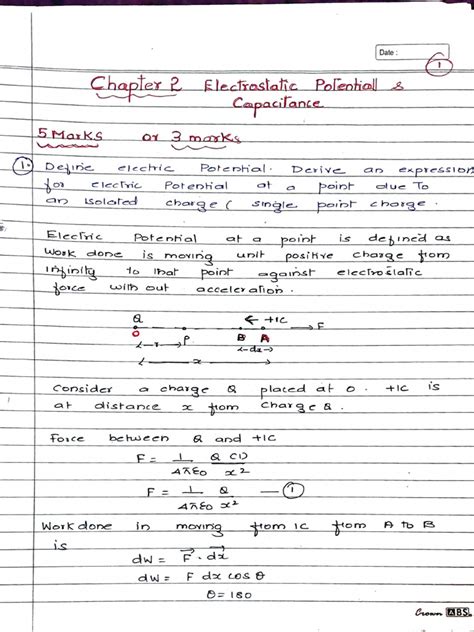 Date :
1
Chapter 2 Electrostatic Potential &
Capacitance
5 Marks or 3 marks
1. Define electric Potential. Derive an expression
for electric Potential at a point due To
an isolated charge ( single point charge.
Electric Potential at a point is defined as
work done is moving unit positive charge from
Infinity to that point against electrostatic
force with out acceleration.
Q ← +1C
O P B A F
r dx
x
Consider a charge Q placed at O. +1C is
at distance x from charge Q.
Force between Q and +1C
F = 1/4πε0 Q(1)/x²
F = 1/4πε0 Q/x² — 1
Work done in moving from 1C from A to B
is
dW = F⃗ · dx⃗
dW = F dx cos θ
θ = 180
Crown ABS